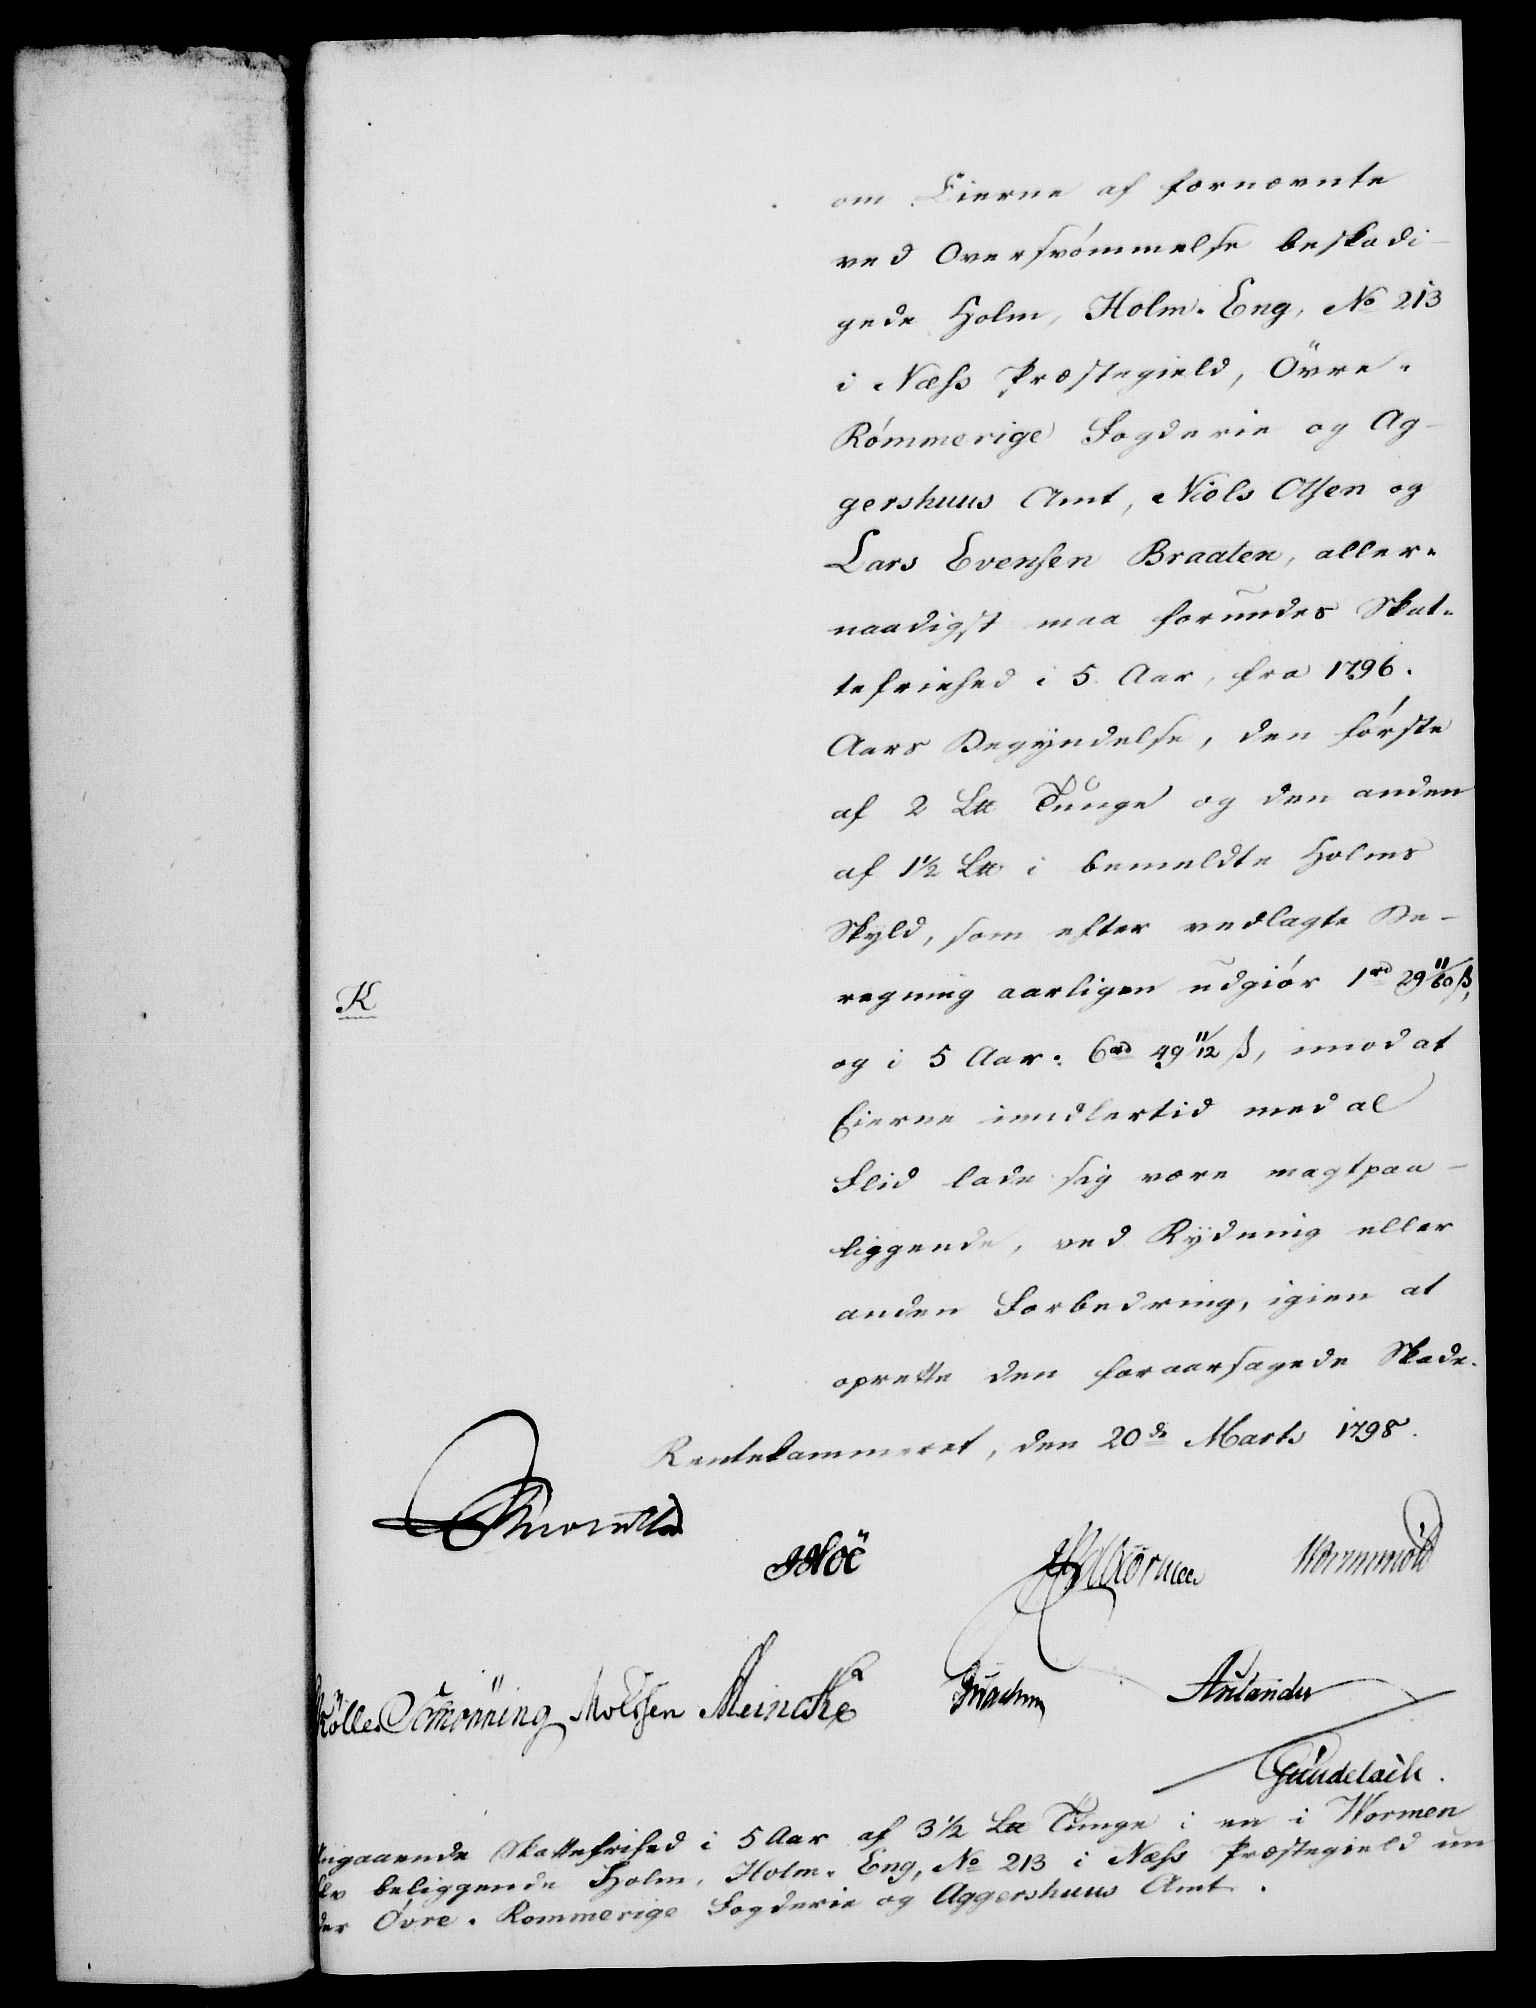 om Eierne af fornævnte
ved Oversvömmelse beskadi-
gede Holm, Holm-Eng, No 213
i Næss Præstegield, Övre-
Römmerige Fogderie og Ag-
gershuus Amt, Niels Olsen og
Lars Evensen Braaten, aller-
naadigst maa forundes Skat-
tefriehed i 5 Aar, fra 1796.
Aars Begyndelse, den förste
af 2 L℔ Tunge og den anden
af 1½ L℔ i bemeldte Holms
Skyld, som efter vedlagte Be-
regning aarligen udgiör 1rd 29 11/60 ß,
K
og i 5 Aar: 6rd 49 11/12 ß, imod at
Eierne imidlertid med al
Flid lade sig være magtpaa-
liggende, ved Rydning eller
anden Forbedring, igien at
oprette den foraarsagede Skade.
Rentekammeret, den 20de Marts 1798.
Hoë Wormskiold
Schönning Moldsen Meincke
Gundelach.
Angaaende Skattefrihed i 5 Aar af 3½ L℔ Tunge i en i Wormen
Elv beliggende Holm, Holm-Eng, No 213 i Næss Præstegield un
der Øvre-Rommerige Fogderie og Aggershuus Amt.